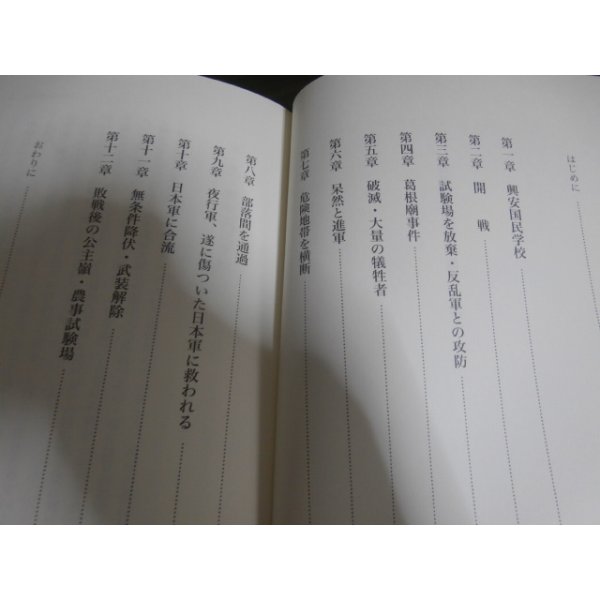 はじめに
第一章 興安国民学校
第二章 開戦
第三章 試験場を放棄・反乱軍との攻防
第四章 葛根廟事件
第五章 破滅・大量の犠牲者
第六章 呆然と進軍
第七章 危険地帯を横断
第八章 部落間を通過
第九章 夜行軍、遂に傷ついた日本軍に救われる
第十章 日本軍に合流
第十一章 無条件降伏・武装解除
第十二章 敗戦後の公主嶺・農事試験場
おわりに